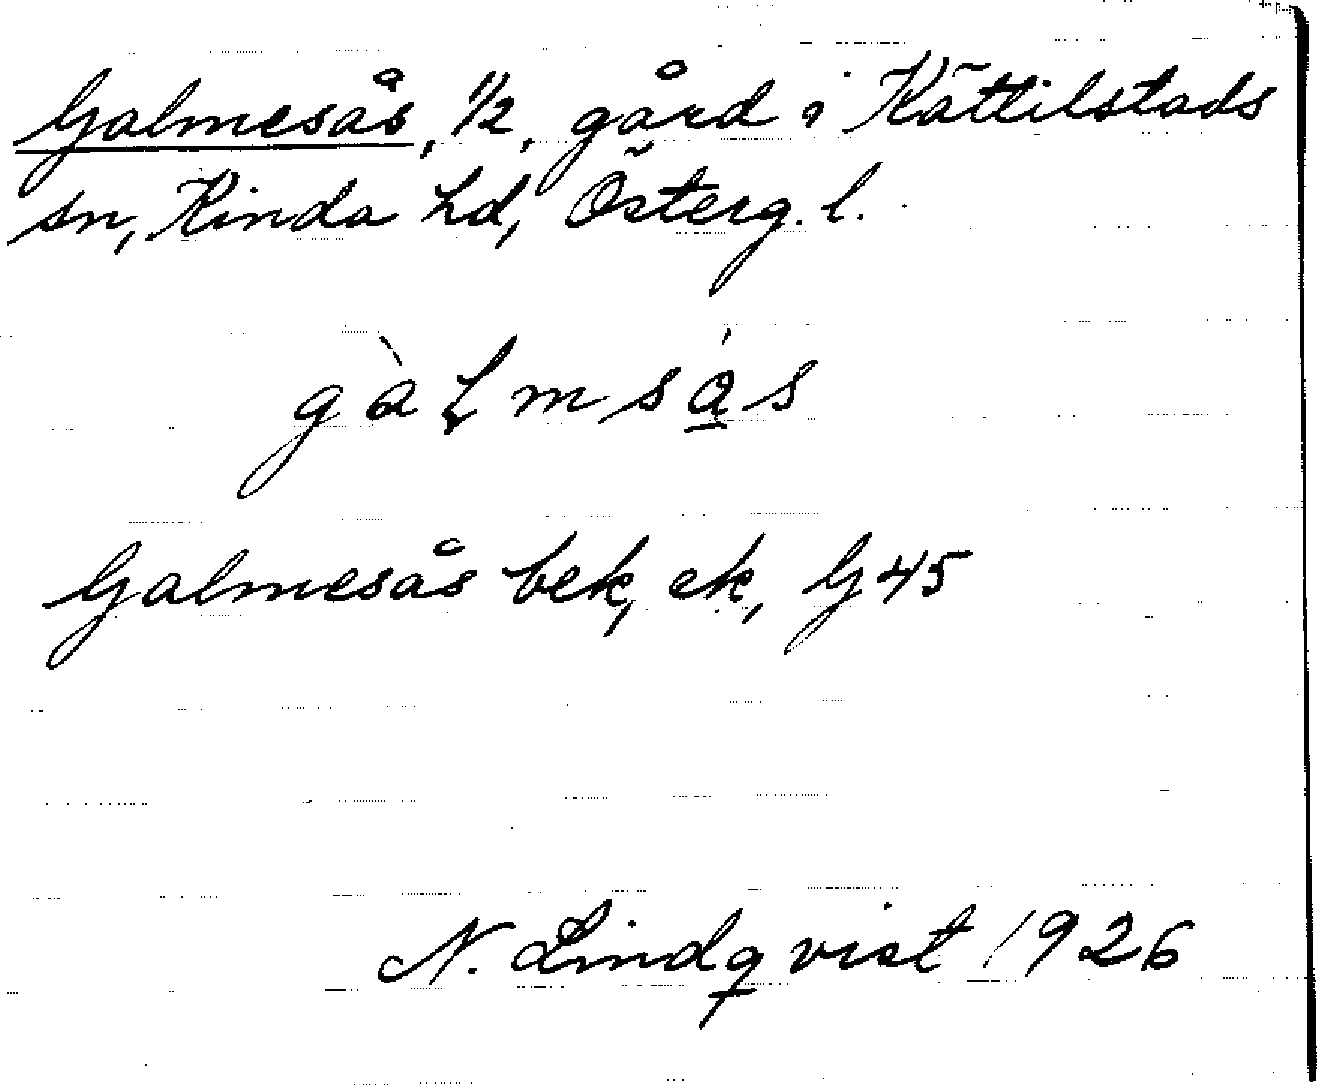 Galmesås, 1/2, gård i Kättilstads
sn, Kinda hd, Österg. l.
gàLmsá̱s
Galmesås bek, ek, G 45
N. Lindqvist 1926